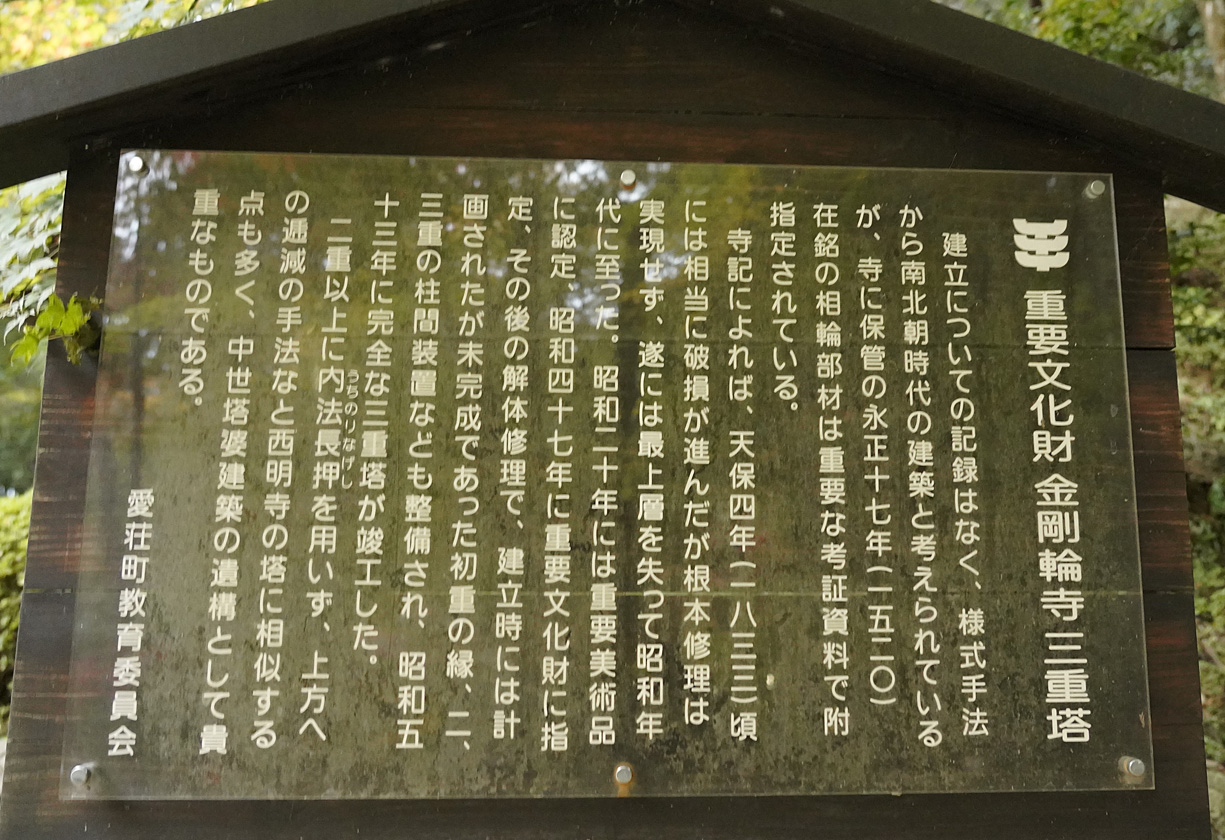 重要文化財 金剛輪寺三重塔
建立についての記録はなく、様式手法
から南北朝時代の建築と考えられている
が、寺に保管の永正十七年(一五二〇)
在銘の相輪部材は重要な考証資料で附
指定されている。
寺記によれば、天保四年(一八三三)頃
には相当に破損が進んだが根本修理は
実現せず、遂には最上層を失って昭和年
代に至った。昭和二十年には重要美術品
に認定、昭和四十七年に重要文化財に指
定、その後の解体修理で、建立時には計
画されたが未完成であった初重の縁、二、
三重の柱間装置なども整備され、昭和五
十三年に完全な三重塔が竣工した。
二重以上に内法長押を用いず、上方へ
うちのりなげし
の逓減の手法など西明寺の塔に相似する
点も多く、中世塔婆建築の遺構として貴
重なものである。
愛荘町教育委員会